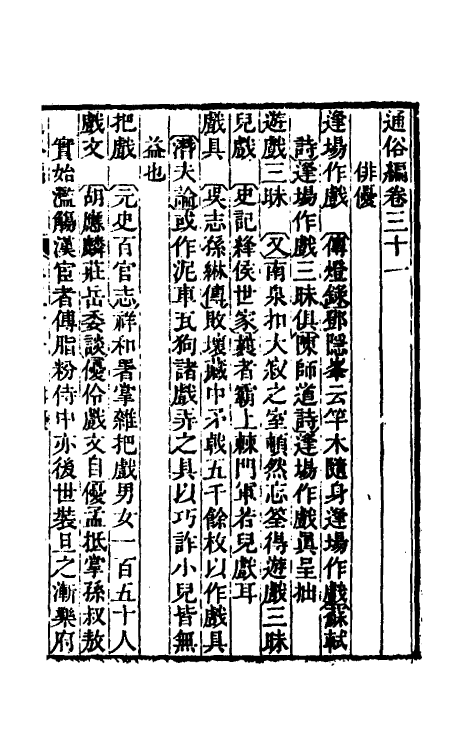 通俗編卷三十一
俳優
逢場作戲 傳燈錄鄧隱峯云竿木隨身逢場作戲蘇軾
詩逢場作戲三昧俱陳師道詩逢場作戲眞呈拙
遊戲三昧 又南泉扣大寂之室頓然忘筌得遊戲三昧
兒戲 史記絳侯世家曩者霸上棘門軍若兒戲耳
戲具 吳志孫綝傳敗壞藏中矛戟五千餘枚以作戲具
潛夫論或作泥車瓦狗諸戲弄之具以巧詐小兒皆無
益也
把戲 元史百官志祥和署掌雜把戲男女一百五十人
戲文 胡應麟莊岳委談優伶戲文自優孟抵掌孫叔敖
實始濫觴漢宦者傅脂粉侍中亦後世裝旦之漸樂府